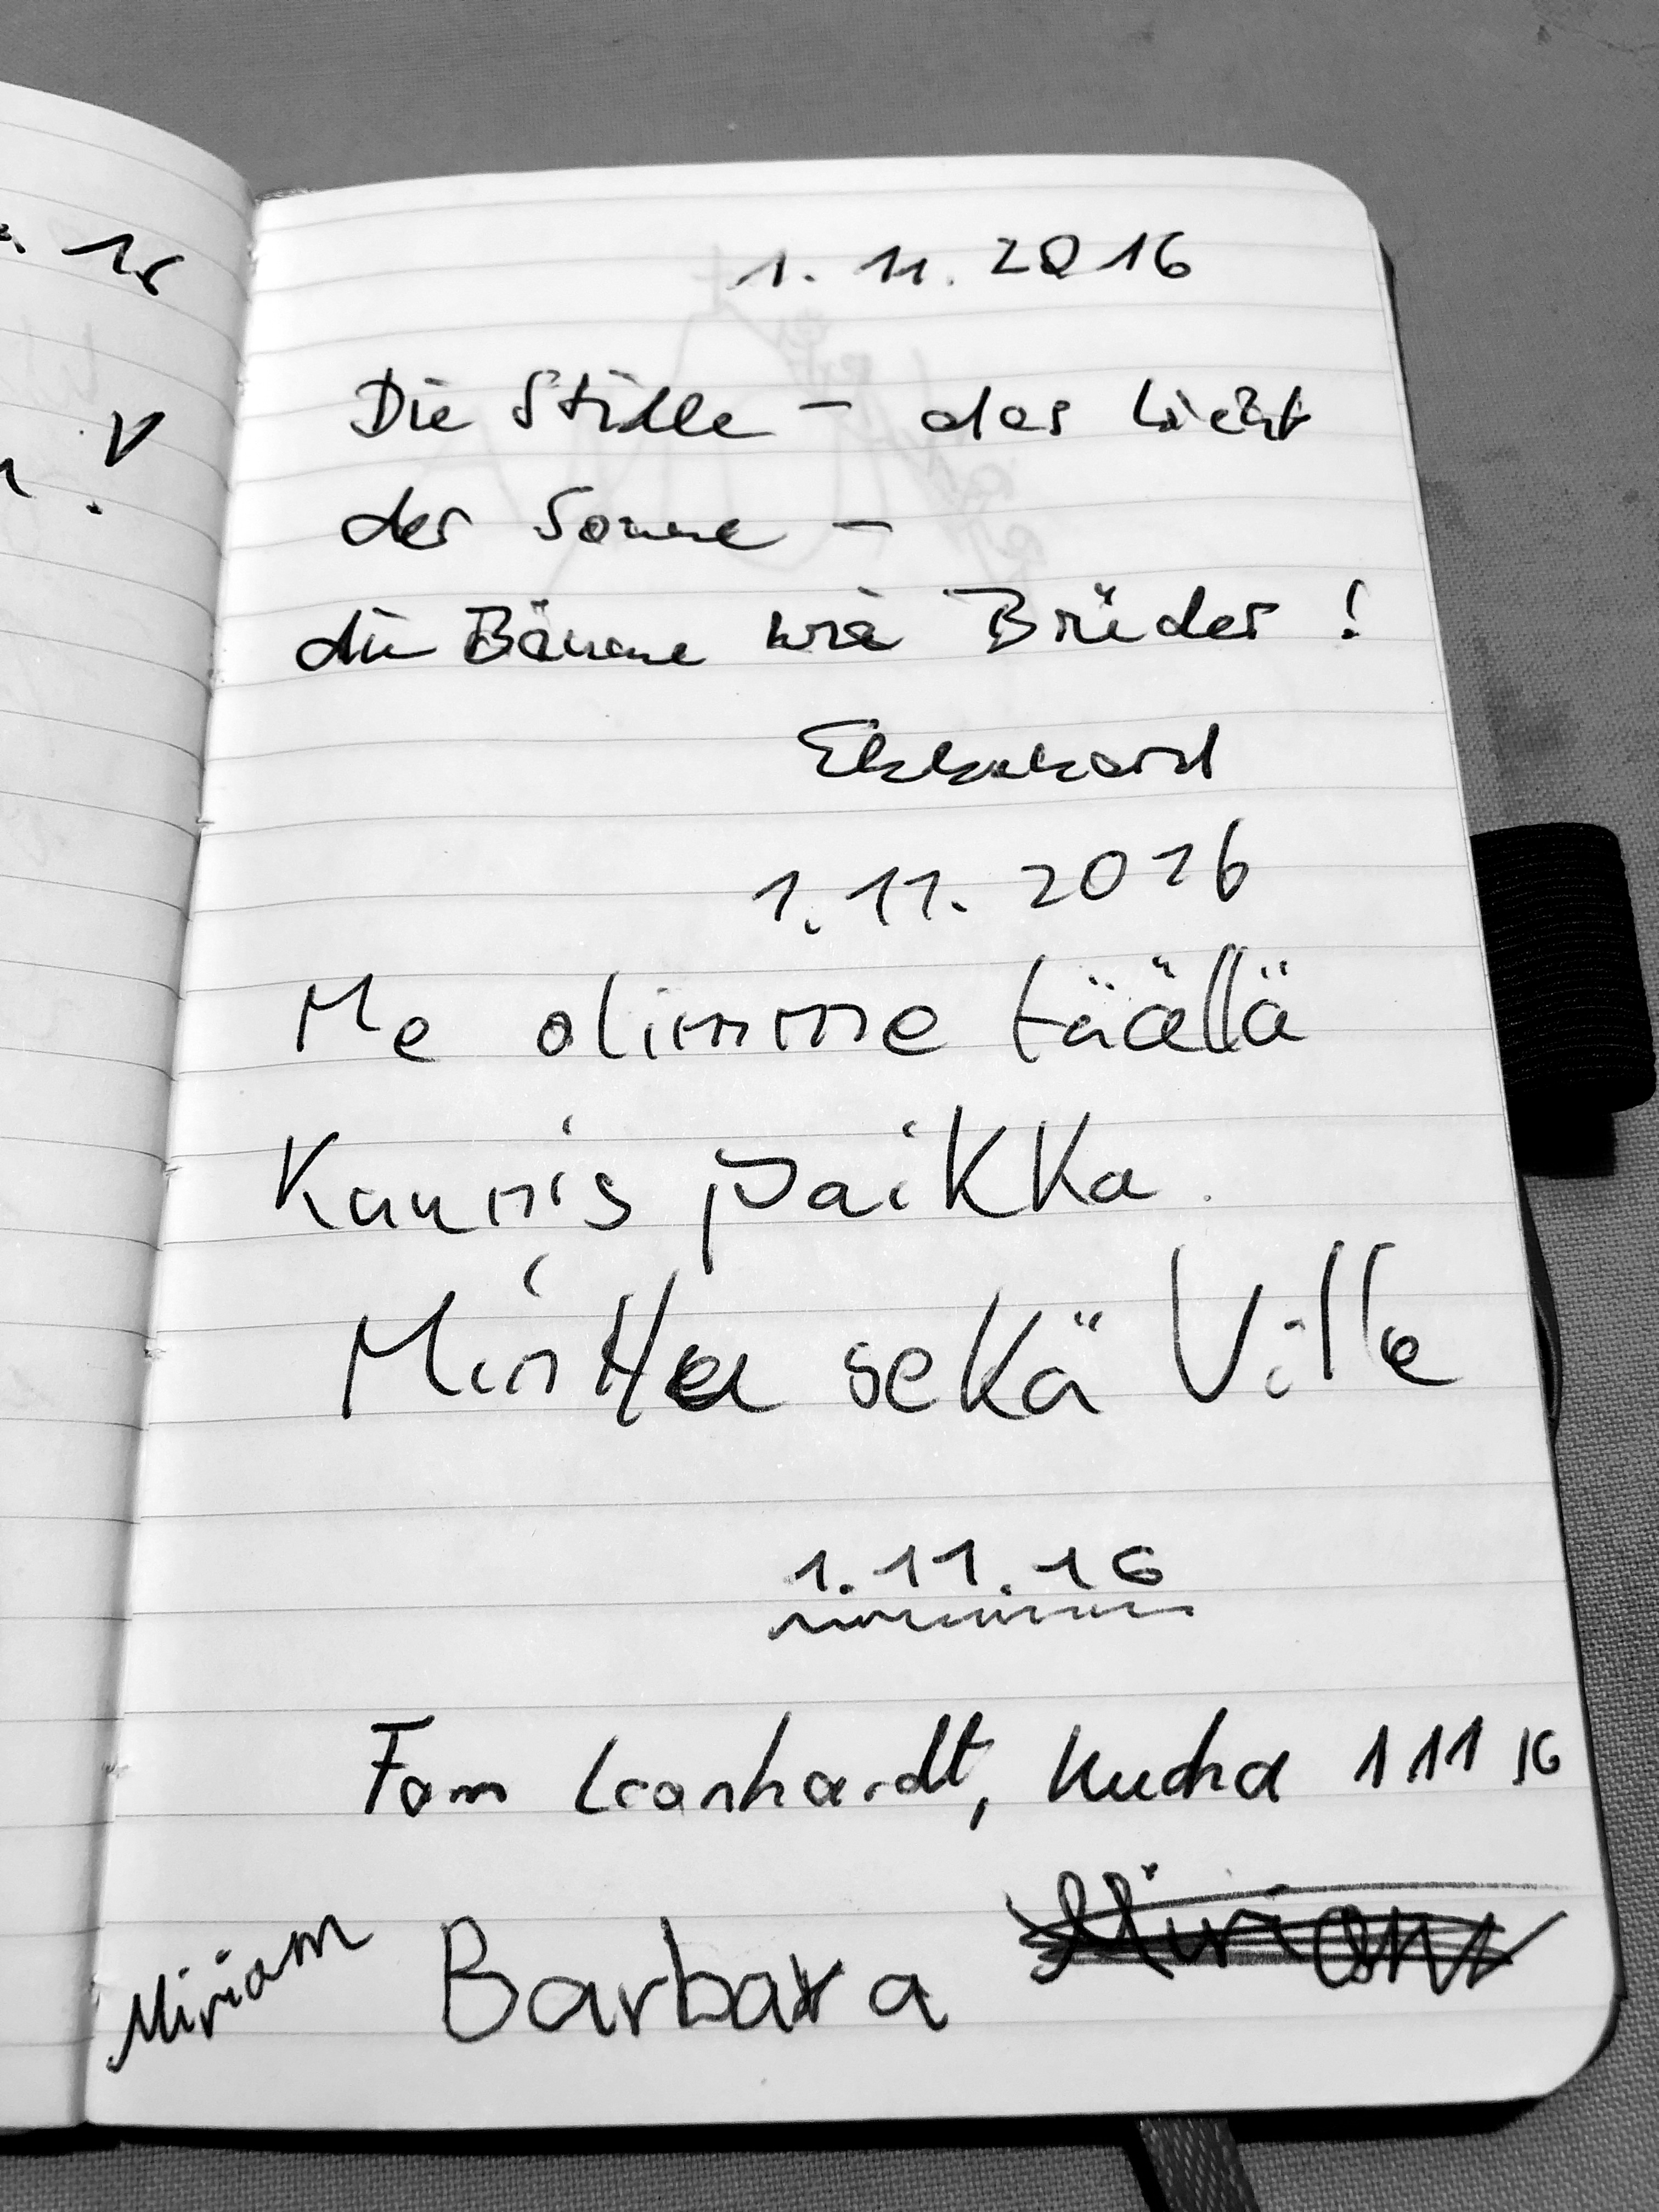 . 16
!
1. 11. 2016
Die Stille – das Licht
der Sonne –
die Bäume wie Brüder !
Ekkehard
1.11. 2016
Me olimme täällä
Kaunis paikka.
Minttu sekä Ville
1.11.16
Fam Leonhardt, Kucha 1.11.16
Miriam Barbara Miriam